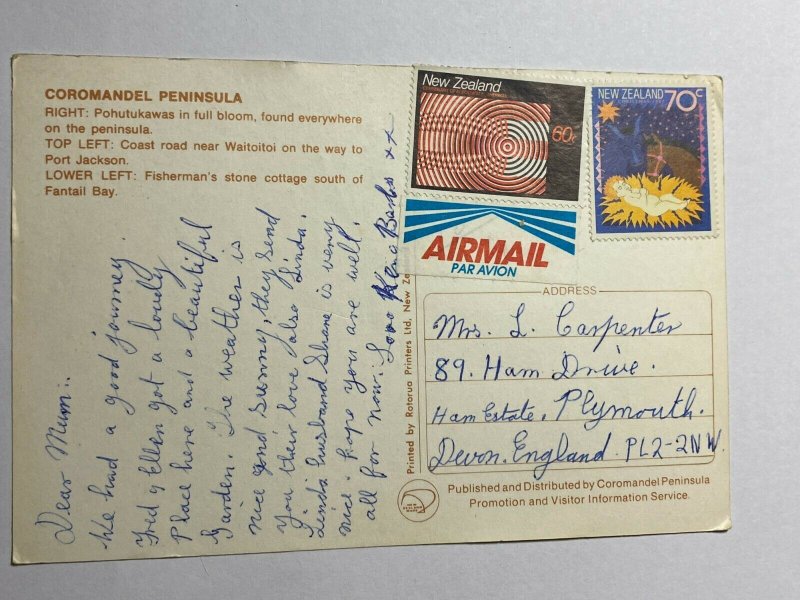 COROMANDEL PENINSULA
RIGHT: Pohutukawas in full bloom, found everywhere
on the peninsula.
TOP LEFT: Coast road near Waitoitoi on the way to
Port Jackson.
LOWER LEFT: Fisherman's stone cottage south of
Fantail Bay.
Dear Mum..
We had a good journey.
Fred & Ellen got a lovely
Place here and a beautiful
Garden. The weather is
nice and sunny, they send
you their love, also Linda.
Linda husband Shane is very
nice. Hope you are well.
all for now. Love xx
Printed by Rotorua Printers Ltd, New Ze
New Zealand
60c
NEW ZEALAND 70c
AIRMAIL
PAR AVION
ADDRESS
Mrs. L. Carpenter
89. Ham Drive.
Ham Estate. Plymouth.
Devon. England. PL2-2NW
Published and Distributed by Coromandel Peninsula
Promotion and Visitor Information Service.